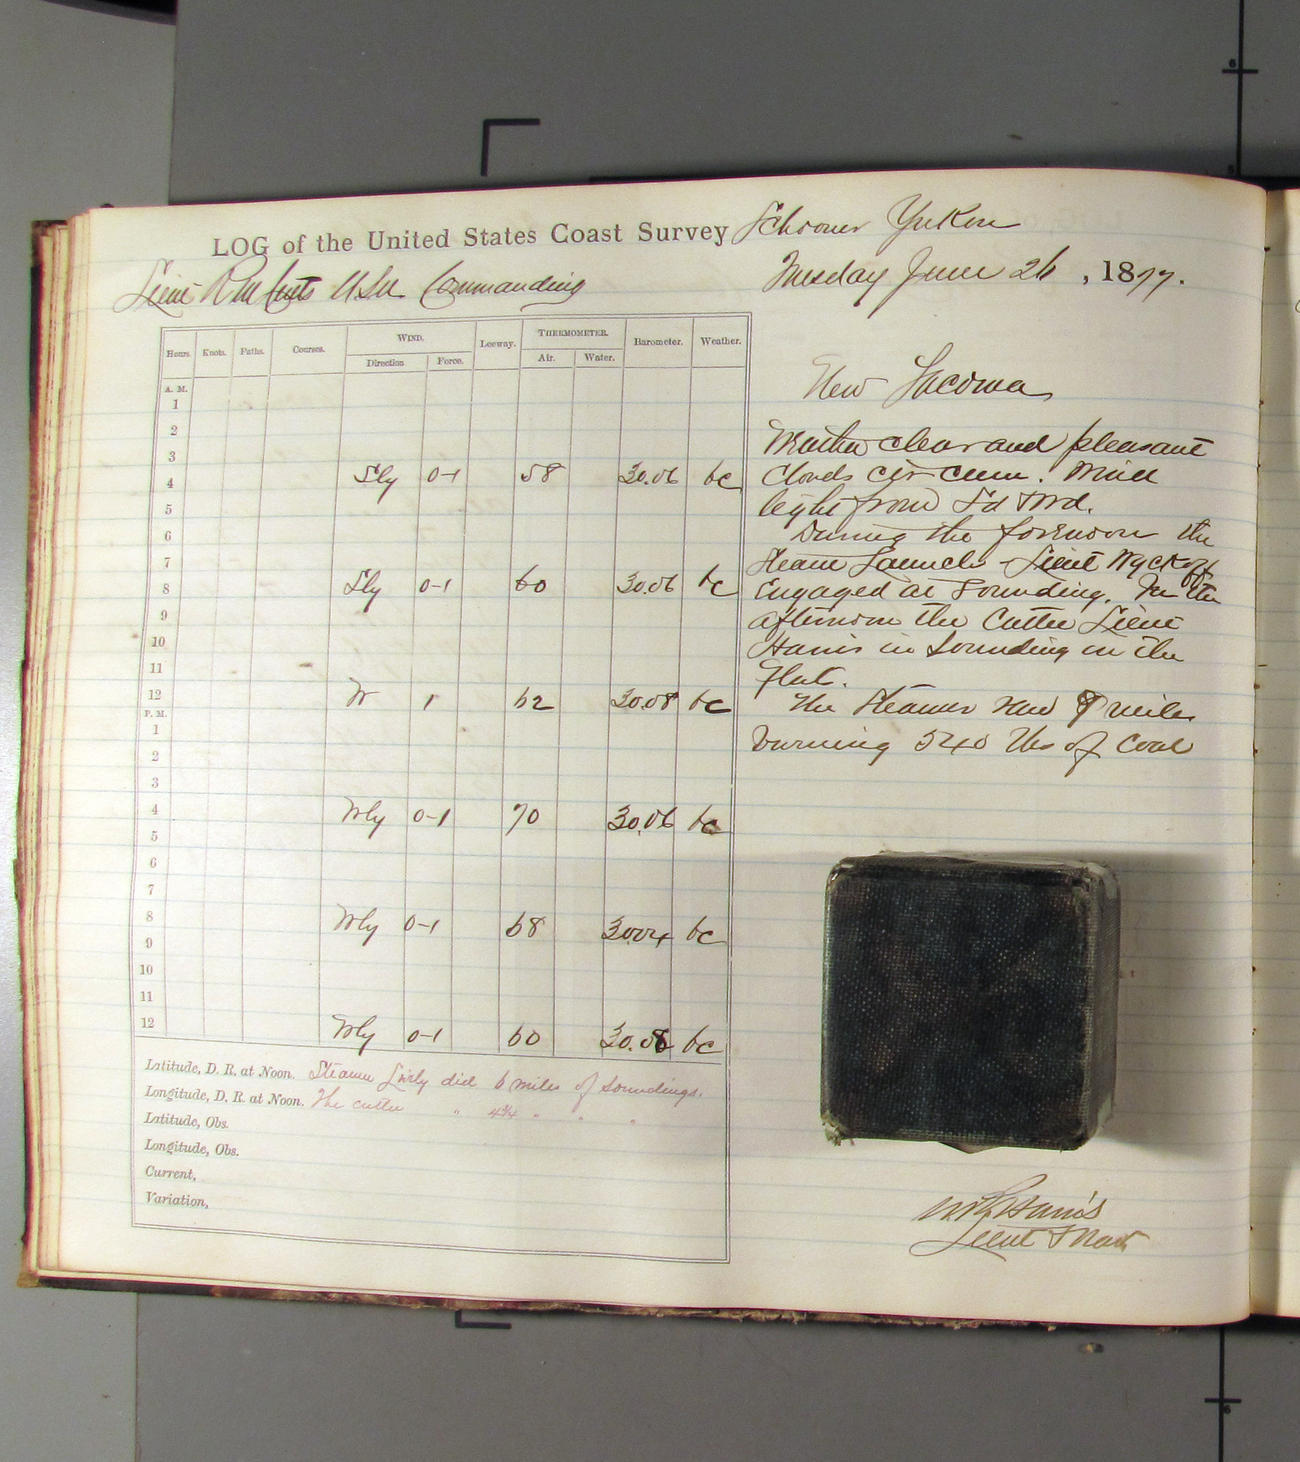 LOG of the United States Coast Survey Schooner Yukon
Lieut R M Cutts U.S.N. Commanding
Tuesday June 26, 1877.
Hours. Knots. Faths. Courses. WIND. Leeway. THERMOMETER. Barometer. Weather.
Direction Force. Air. Water.
A. M.
1
2
3
4 Sly 0-1 58 30.06 bc
5
6
7
8 Sly 0-1 60 30.06 bc
9
10
11
12 W 1 62 30.08 bc
P. M.
1
2
3
4 Wly 0-1 70 30.06 bc
5
6
7
8 Wly 0-1 68 30.04 bc
9
10
11
12 Wly 0-1 60 30.06 bc
Latitude, D. R. at Noon. Steamer Lively did 6 miles of soundings.
Longitude, D. R. at Noon. The cutter " 4¾ " " "
Latitude, Obs.
Longitude, Obs.
Current,
Variation,
New Tacoma
Weather clear and pleasant
Clouds cir cum. Wind
light from Sd & Wd.
During the forenoon the
Steam Launch - Lieut Wyckoff
Engaged at Sounding. In the
afternoon the Cutter Lieut
Harris in Sounding on the
flat.
The Steamer ran 8 miles
burning 540 lbs of Coal
Harris
Lieut &
6
6